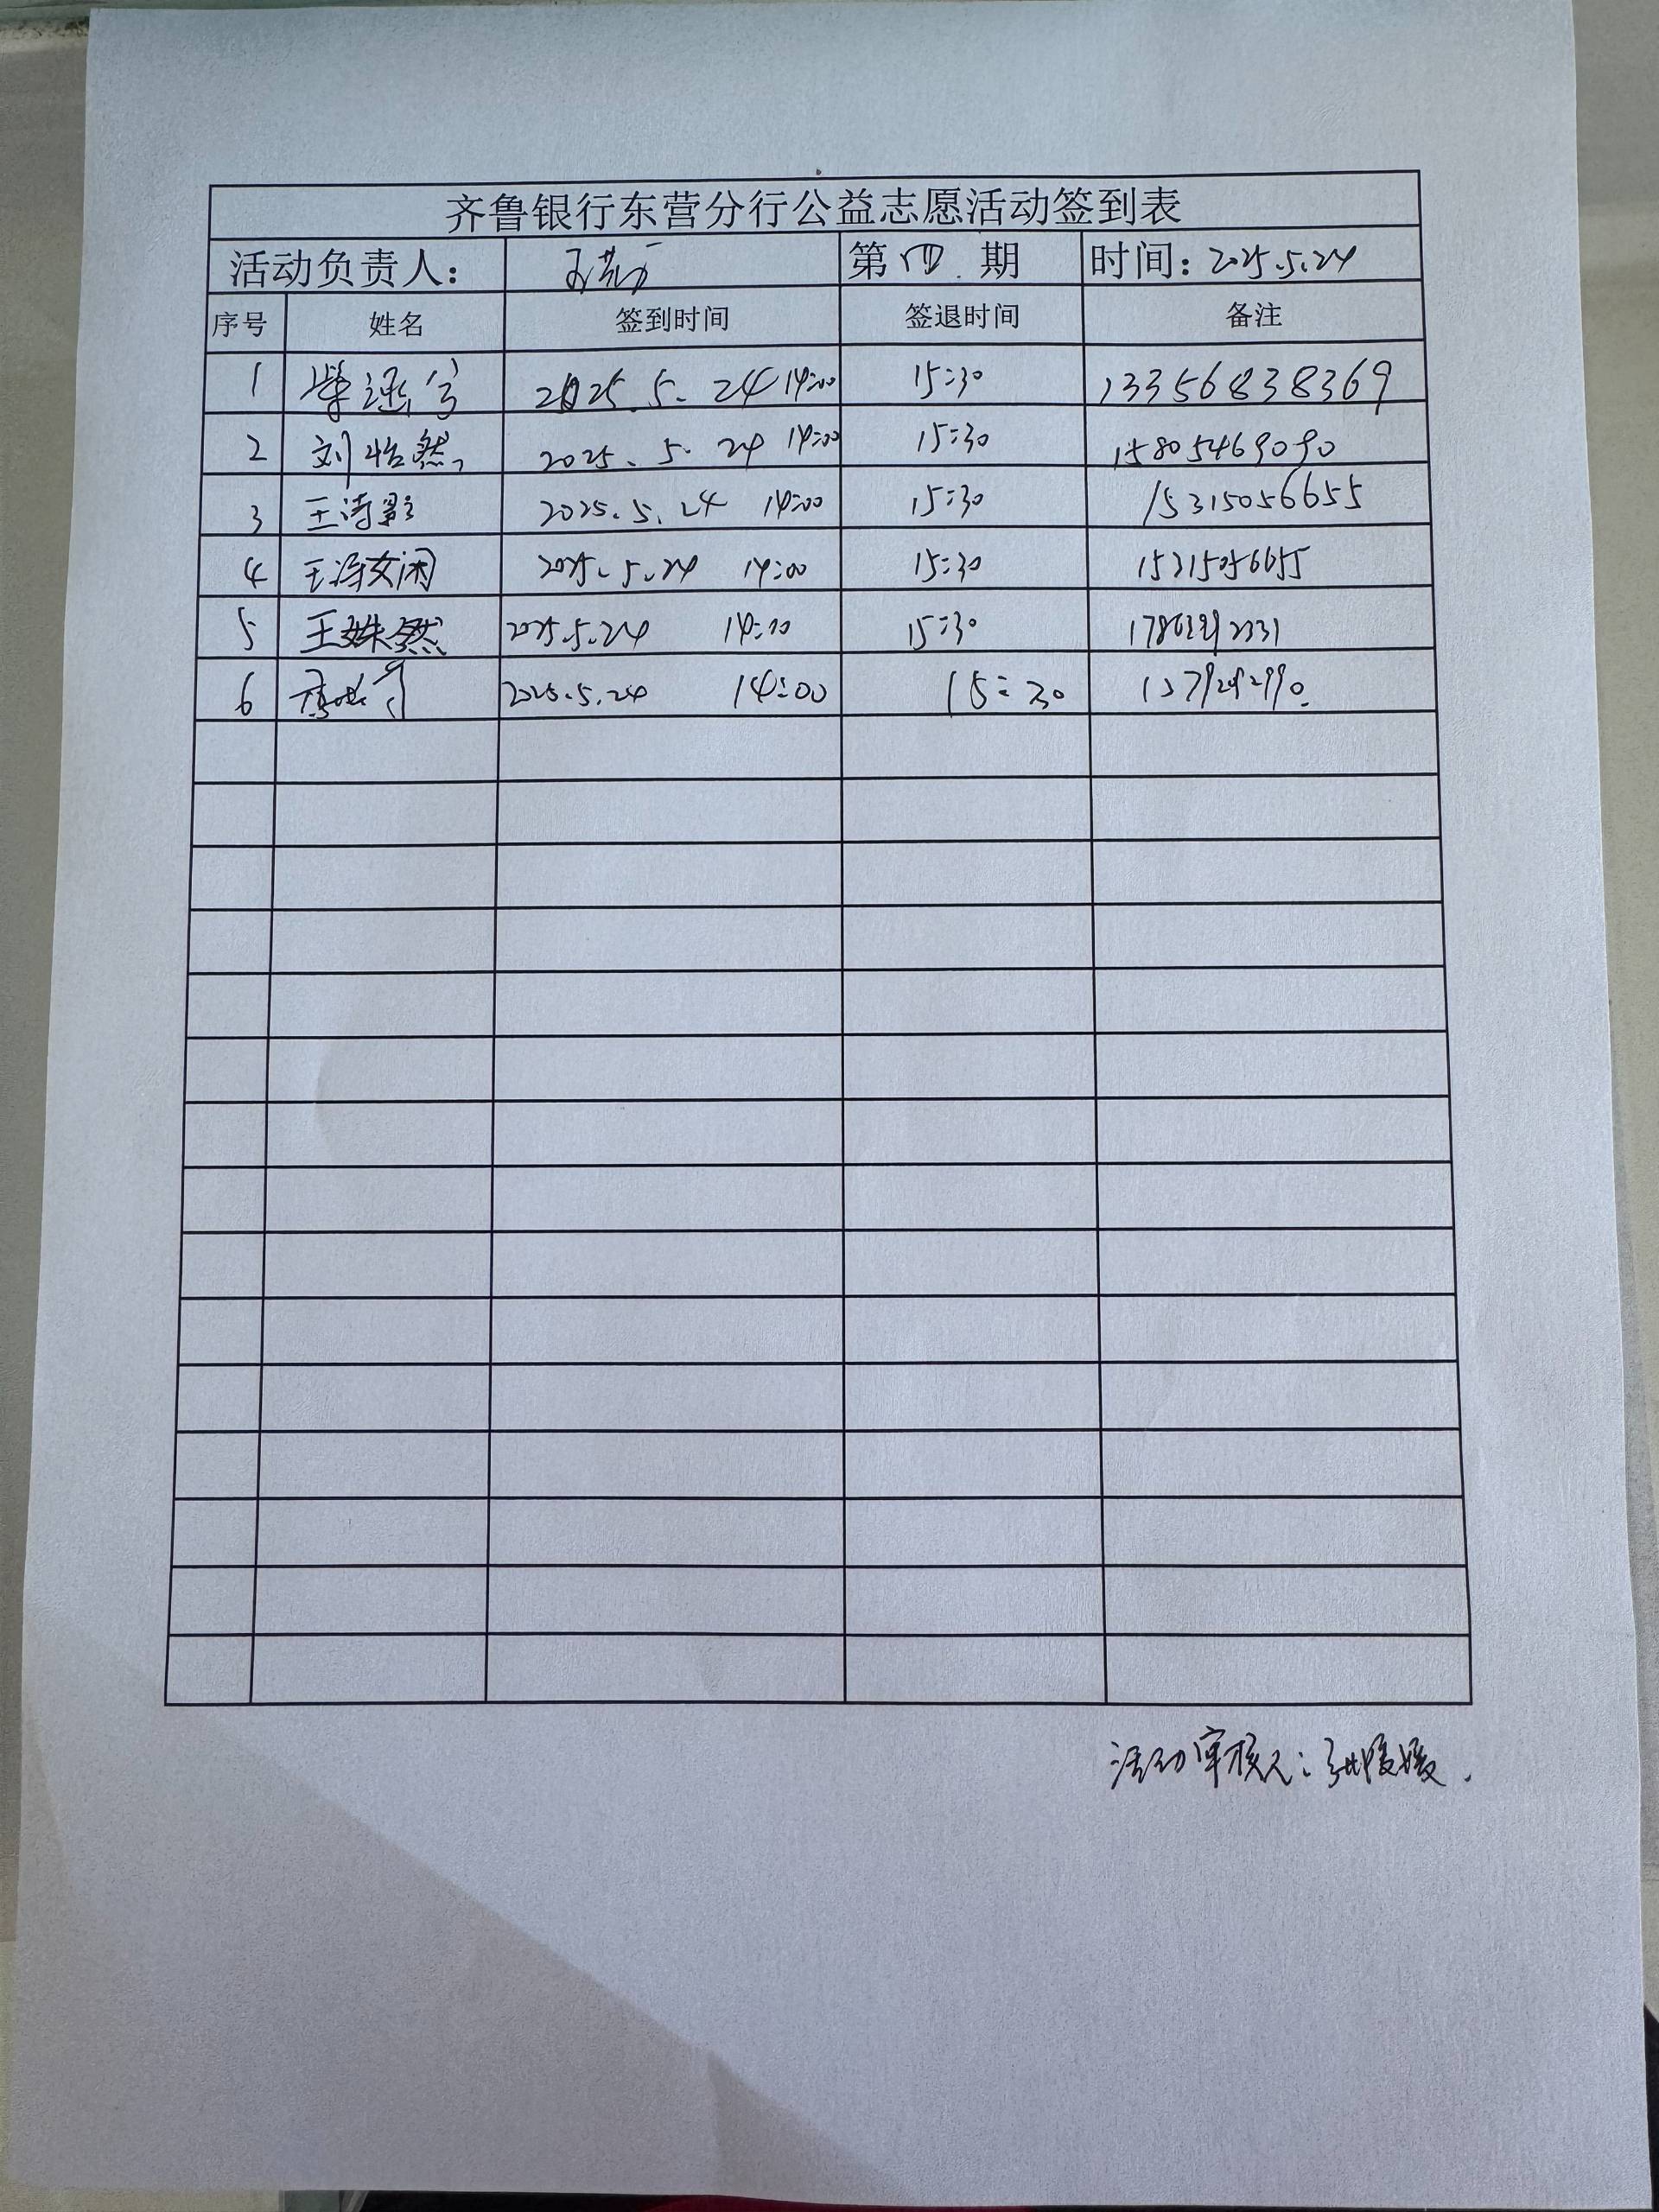 齐鲁银行东营分行公益志愿活动签到表
活动负责人： 第四期 时间：2025.5.24
序号 姓名 签到时间 签退时间 备注
1 2025.5.24 14:00 15:30 13356838369
2 刘怡然 2025.5.24 14:00 15:30 15805469090
3 王诗影 2025.5.24 14:00 15:30 15315056655
4 2025.5.24 14:00 15:30 15315056655
5 王姝然 2025.5.24 14:00 15:30
6 2025.5.24 14:00 15:30
活动审核人：张媛媛.